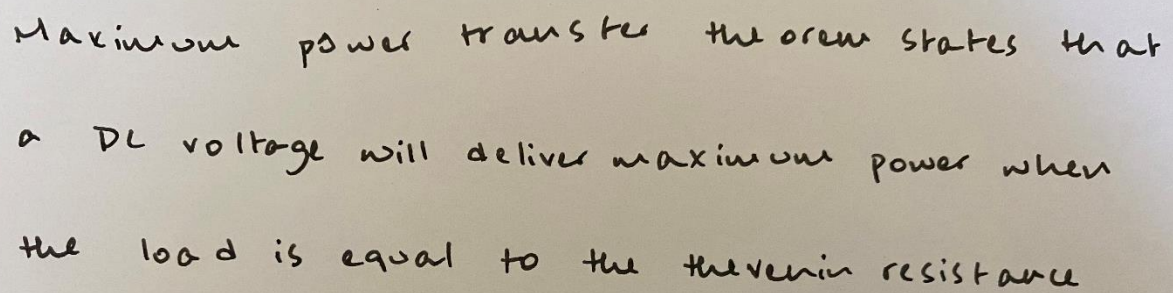 Maximum power transfer theorem states that
a DC voltage will deliver maximum power when
the load is equal to the thevenin resistance